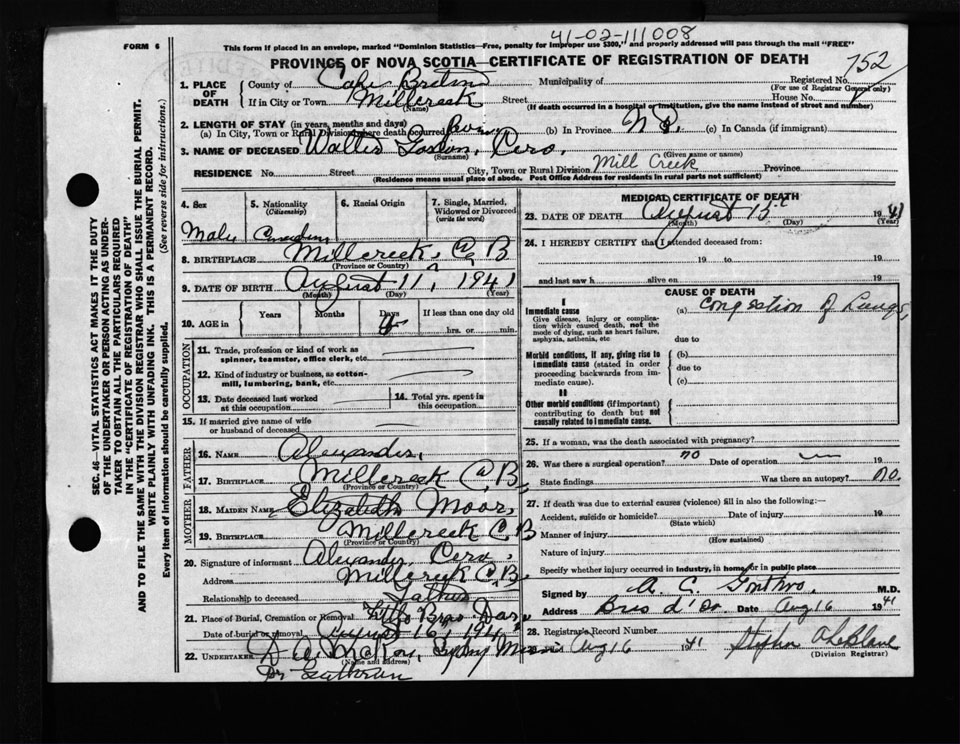 41-02-111008
FORM 6
This form if placed in an envelope, marked "Dominion Statistics—Free, penalty for improper use $300," and properly addressed will pass through the mail "FREE"
PROVINCE OF NOVA SCOTIA—CERTIFICATE OF REGISTRATION OF DEATH
SEC. 46—VITAL STATISTICS ACT MAKES IT THE DUTY
OF THE UNDERTAKER OR PERSON ACTING AS UNDER-
TAKER TO OBTAIN ALL THE PARTICULARS REQUIRED
IN THE "CERTIFICATE OF REGISTRATION OF DEATH"
AND TO FILE THE SAME WITH THE DIVISION REGISTRAR WHO SHALL ISSUE THE BURIAL PERMIT.
WRITE PLAINLY WITH UNFADING INK. THIS IS A PERMANENT RECORD.
Every item of information should be carefully supplied. (See reverse side for instructions.)
1. PLACE OF DEATH County of Cape Breton Municipality of Registered No. 752
(For use of Registrar General only)
If in City or Town Millcreek Street House No.
(Name) (If death occurred in a hospital or institution, give the name instead of street and number)
2. LENGTH OF STAY (in years, months and days)
(a) In City, Town or Rural Division where death occurred (b) In Province N.S. (c) In Canada (if immigrant)
3. NAME OF DECEASED Walter
(Surname) (Given name or names)
RESIDENCE No. Street City, Town or Rural Division Mill Creek Province
(Residence means usual place of abode. Post Office Address for residents in rural parts not sufficient)
4. Sex 5. Nationality (Citizenship) 6. Racial Origin 7. Single, Married, Widowed or Divorced (write the word)
Male Canadian
8. BIRTHPLACE Millcreek, C B
(Province or Country)
9. DATE OF BIRTH August 11, 1941
(Month) (Day) (Year)
10. AGE in Years Months Days 4 If less than one day old hrs. or min.
OCCUPATION
11. Trade, profession or kind of work as spinner, teamster, office clerk, etc.
12. Kind of industry or business, as cotton-mill, lumbering, bank, etc.
13. Date deceased last worked at this occupation 14. Total yrs. spent in this occupation
15. If married give name of wife or husband of deceased
FATHER
16. NAME Alexander,
17. BIRTHPLACE Millcreek C.B.
(Province or Country)
MOTHER
18. MAIDEN NAME Elizabeth Moor,
19. BIRTHPLACE Millcreek C B
(Province or Country)
20. Signature of informant Alexander
Address Millcreek C.B.
Relationship to deceased Father
21. Place of Burial, Cremation or Removal Little Bras Dor
Date of burial or removal August 16, 1941
22. UNDERTAKER Sydney Mines
(Name and address)
MEDICAL CERTIFICATE OF DEATH
23. DATE OF DEATH August 15 1941
(Month) (Day) (Year)
24. I HEREBY CERTIFY that I attended deceased from:
19 to 19
and last saw h alive on 19
CAUSE OF DEATH
I
Immediate cause (a) Congestion of Lungs,
Give disease, injury or complication which caused death, not the mode of dying, such as heart failure, asphyxia, asthenia, etc due to
Morbid conditions, if any, giving rise to immediate cause (stated in order proceeding backwards from immediate cause). (b)
due to
(c)
II
Other morbid conditions (if important) contributing to death but not causally related to immediate cause.
25. If a woman, was the death associated with pregnancy?
26. Was there a surgical operation? no Date of operation
State findings Was there an autopsy? no.
27. If death was due to external causes (violence) fill in also the following:—
Accident, suicide or homicide? Date of injury 19
(State which)
Manner of injury
(How sustained)
Nature of injury
Specify whether injury occurred in industry, in home, or in public place
Signed by A. C. Gouthro. M.D.
Address Bras d'Or Date Aug 16 1941
28. Registrar's Record Number Aug 16 1941 Stephen A LeBlanc
(Division Registrar)